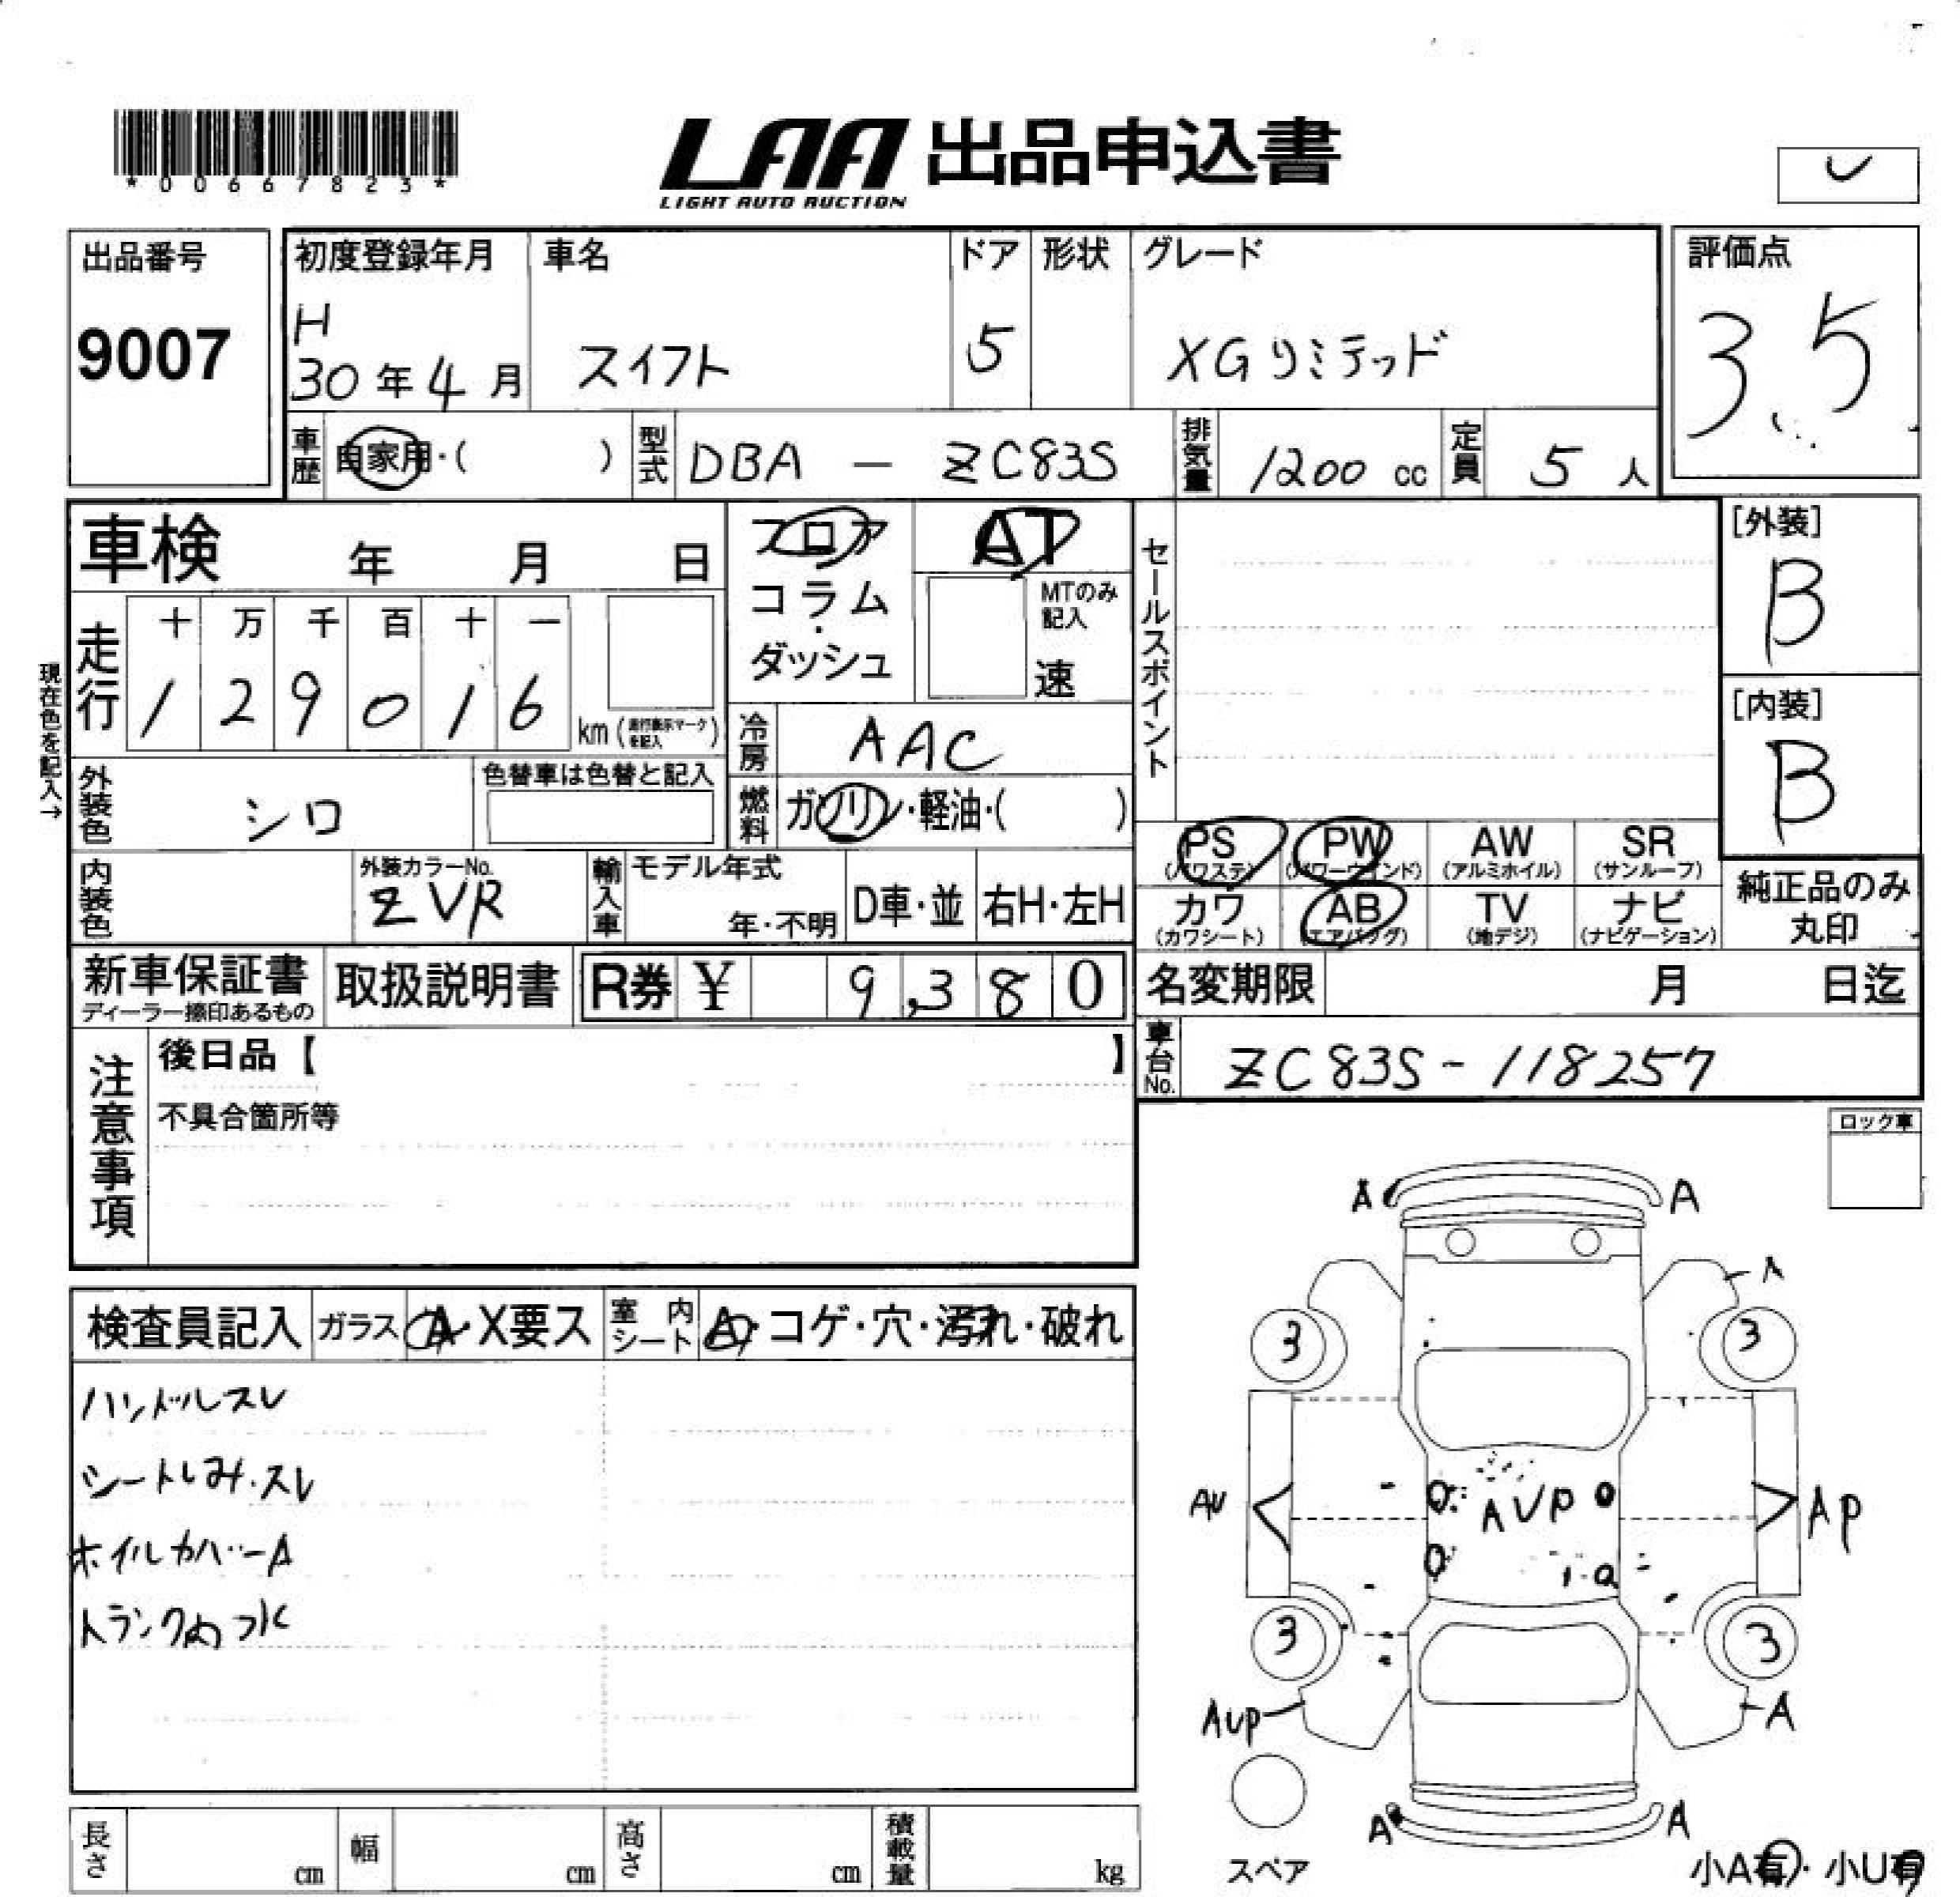 *00667823*
LAA 出品申込書
LIGHT AUTO AUCTION
出品番号
9007
初度登録年月
H
30年4月
車名
スイフト
ドア
5
形状
グレード
XGリミテッド
評価点
3.5
車歴
自家用・( )
型式
DBA － ZC83S
排気量
1200 cc
定員
5 人
車検 年 月 日
フロア
コラム
・
ダッシュ
AT
MTのみ
記入
速
セールスポイント
[外装]
B
[内装]
B
現在色を記入→
走行
十 万 千 百 十 一
1 2 9 0 1 6
km (走行表示マークを記入)
冷房
AAC
外装色
シロ
色替車は色替と記入
燃料
ガソリン・軽油・( )
PS
(パワステ)
PW
(パワーウインド)
AW
(アルミホイル)
SR
(サンルーフ)
カワ
(カワシート)
AB
(エアバッグ)
TV
(地デジ)
ナビ
(ナビゲーション)
純正品のみ
丸印
内装色
外装カラーNo.
ZVR
輸入車
モデル年式
年・不明
D車・並
右H・左H
新車保証書
ディーラー捺印あるもの
取扱説明書
R券 ¥ 9,380
名変期限 月 日迄
車台No.
ZC83S-118257
注意事項
後日品【 】
不具合箇所等
ロック車
検査員記入
ガラス
A・X要ス
室内
シート
A・コゲ・穴・汚れ・破れ
ハンドルスレ
シートしみ.スレ
ホイルカバーA
トランク内
A
A
A
3
3
AU
AUP
AP
3
3
AUP
A
A
A
スペア
小A有・小U有
長さ cm
幅 cm
高さ cm
積載量 kg